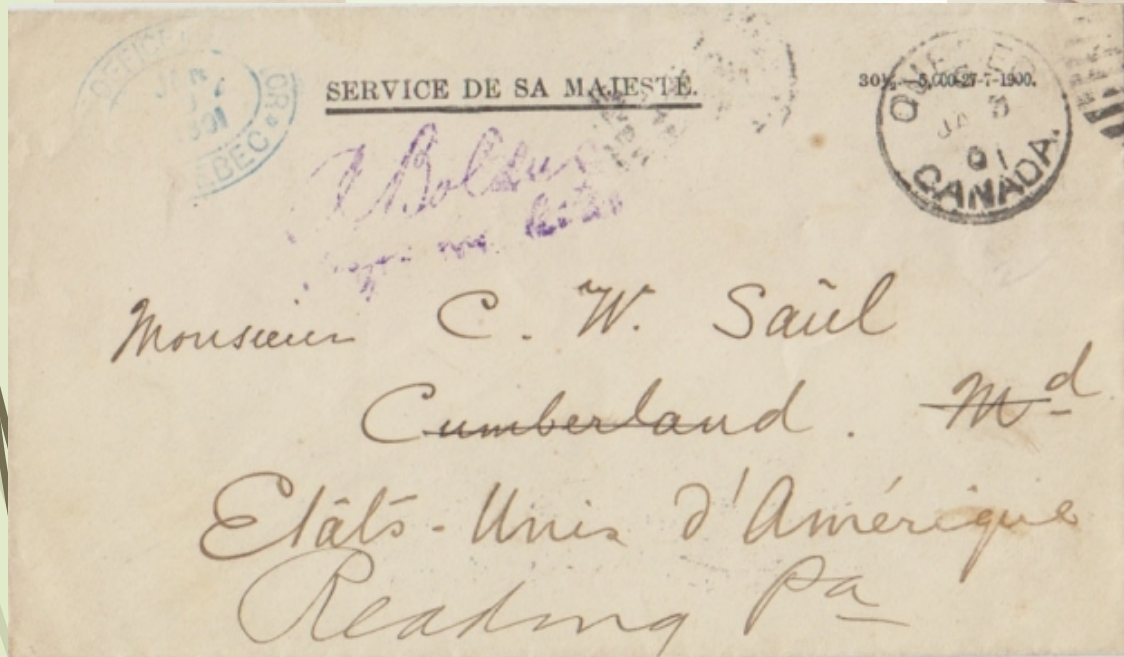 OFFICE
JAN
1901
QUEBEC
SERVICE DE SA MAJESTÉ.
30½.—5,000-27-7-1900.
QUEBEC
JA 3
01
CANADA.
Bolduc
Monsieur C. W. Saül
Cumberland. Md
Etâts-Unis d'Amérique
Reading Pa